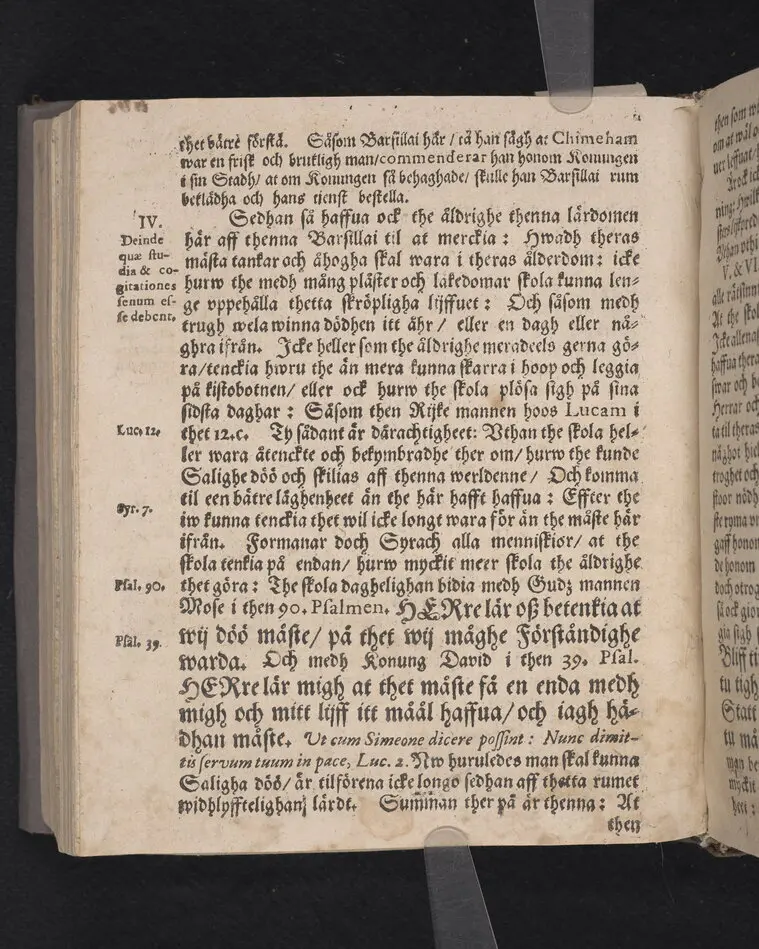 thet bätre förstå. Såsom Barsillai här / tå han sågh at Chimeham
war en frisk och brukligh man / commenderar han honom Konungen
i sin Stadh / at om Konungen så behaghade / skulle han Barsillai rum
beklädha och hans tienst bestella.
IV.
Deinde
quæ stu-
dia & co-
gitationes
senum es-
se debent.
Sedhan så haffua ock the åldrighe thenna lärdomen
här aff thenna Barsillai til at merckia: Hwadh theras
mästa tankar och åhogha skal wara i theras ålderdom: icke
hurw the medh mång pläster och läkedomar skola kunna len-
ge vppehålla thetta skröpligha lijffuet: Och såsom medh
trugh wela winna dödhen itt åhr / eller en dagh eller nå-
ghra ifrån. Icke heller som the åldrighe meradeels gerna gö-
ra / tenckia hwru the än mera kunna skarra i hoop och leggia
på kistobotnen / eller ock hurw the skola plösa sigh på sina
sidsta daghar: Såsom then Rijke mannen hoos Lucam i
Luc. 12.
thet 12. c. Ty sådant är dårachtigheet: Vthan the skola hel-
ler wara åtenckte och bekymbradhe ther om / hurw the kunde
Salighe döö och skilias aff thenna werldenne / Och komma
til een bätre läghenheet än the här hafft haffua: Effter the
Syr. 7.
iw kunna tenckia thet wil icke longt wara för än the måste här
ifrån. Formanar doch Syrach alla menniskior / at the
skola tenkia på endan / hurw myckit meer skola the åldrighe
Psal. 90.
thet göra: The skola daghelighan bidia medh Gudz mannen
Mose i then 90. Psalmen. HERre lär oß betenkia at
Psal. 39.
wij döö måste / på thet wij måghe Förståndighe
warda. Och medh Konung David i then 39. Psal.
HERre lär migh at thet måste få en enda medh
migh och mitt lijff itt määl haffua / och iagh hä-
dhan måste. Ut cum Simeone dicere possint: Nunc dimit-
tis servum tuum in pace, Luc. 2. Nw huruledes man skal kunna
Saligha döö / är tilförena icke longo sedhan aff thetta rumet
widhlyfftelighan lärdt. Summan ther på är thenna: At
then